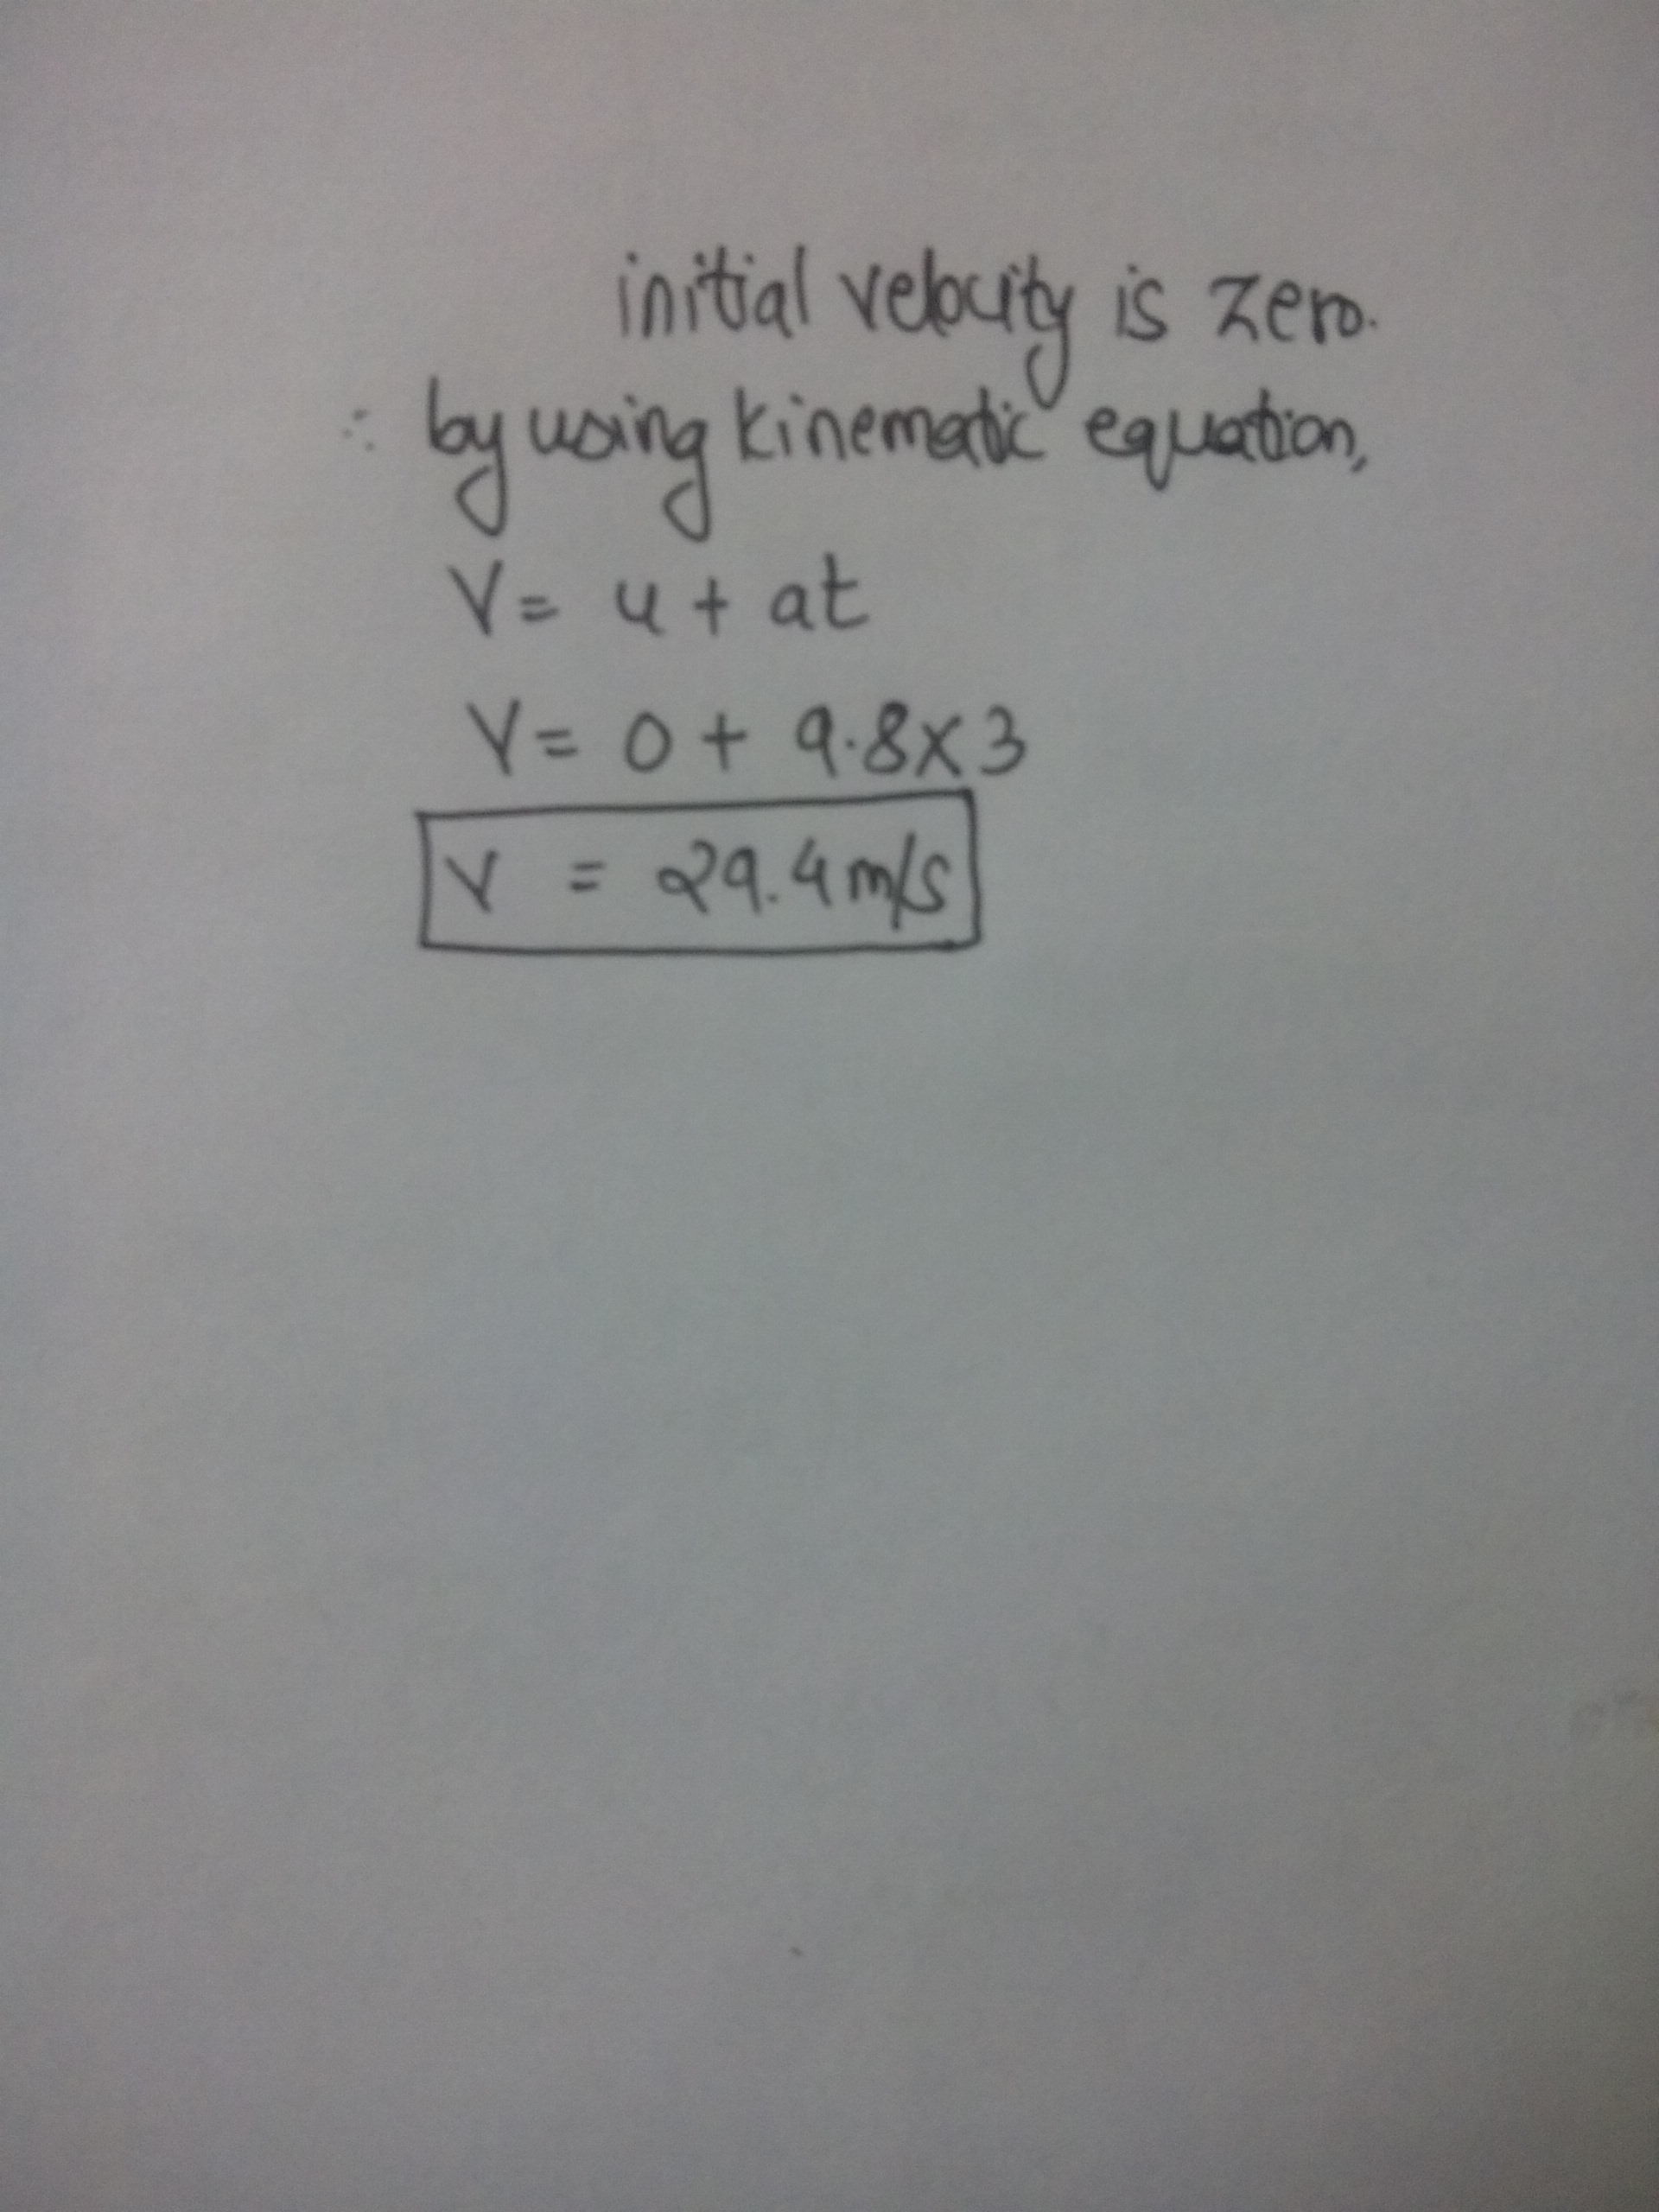 initial velocity is zero.
∴ by using kinematic equation,
V = u + at
V = 0 + 9.8x3
V = 29.4 m/s